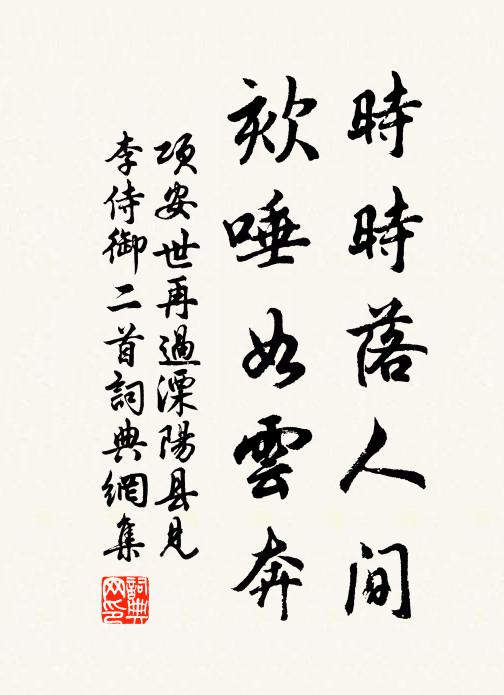 時時落人间
欬唾如雲奔
项安世再過溧陽县見
李侍御二首詞典網集
詞典
网印